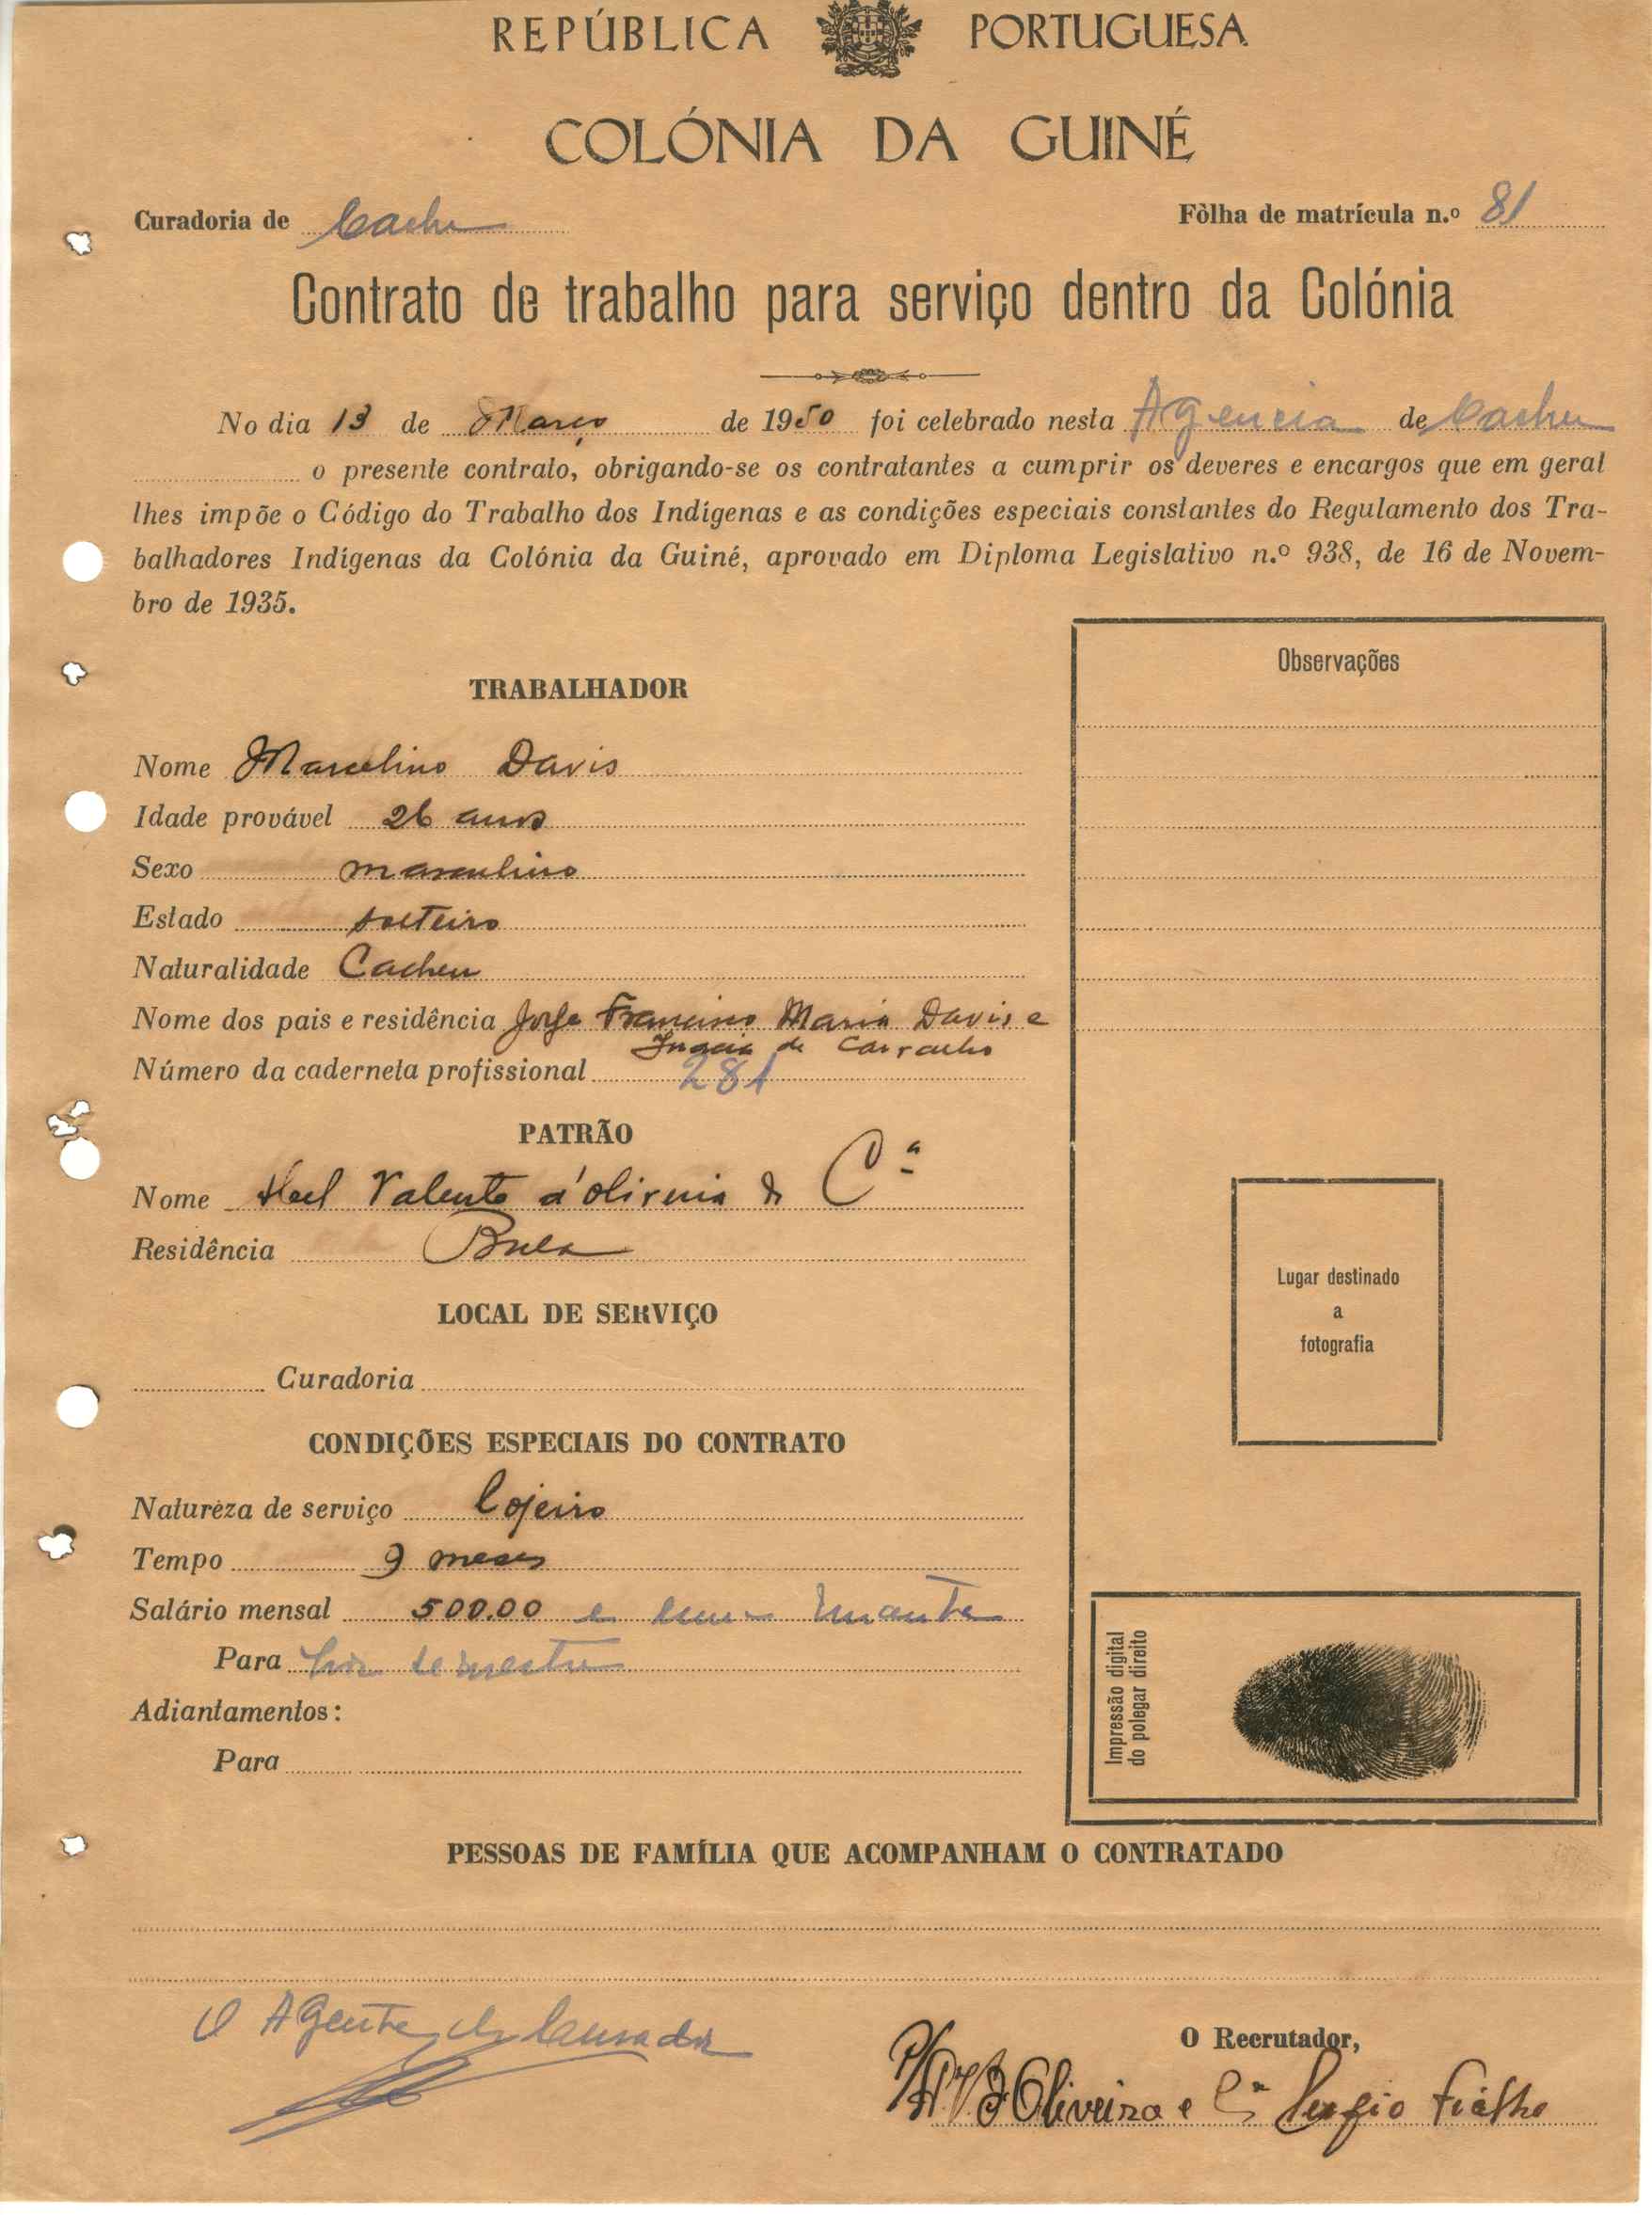 REPÚBLICA PORTUGUESA
COLÓNIA DA GUINÉ
Curadoria de Cacheu Fôlha de matrícula n.º 81
Contrato de trabalho para serviço dentro da Colónia
No dia 13 de Março de 1950 foi celebrado nesta Agencia de Cacheu
o presente contrato, obrigando-se os contratantes a cumprir os deveres e encargos que em geral
lhes impõe o Código do Trabalho dos Indígenas e as condições especiais constantes do Regulamento dos Tra-
balhadores Indígenas da Colónia da Guiné, aprovado em Diploma Legislativo n.º 938, de 16 de Novem-
bro de 1935.
Observações
TRABALHADOR
Nome Marcelino Davis
Idade provável 26 anos
Sexo masculino
Estado solteiro
Naturalidade Cacheu
Nome dos pais e residência Jorge Francisco Maria Davis e
Inacia de Carvalho
Número da caderneta profissional 281
PATRÃO
Nome Valente d'Oliveira & Cª
Residência Bula
LOCAL DE SERVIÇO
Curadoria
Lugar destinado
a
fotografia
CONDIÇÕES ESPECIAIS DO CONTRATO
Naturèza de serviço Lojeiro
Tempo 9 meses
Salário mensal 500.00 e uma manta
Para por semestre
Adiantamentos:
Para
Impressão digital
do polegar direito
PESSOAS DE FAMÍLIA QUE ACOMPANHAM O CONTRATADO
O Agente do Curador
O Recrutador,
Oliveira e Cª Sergio Fialho